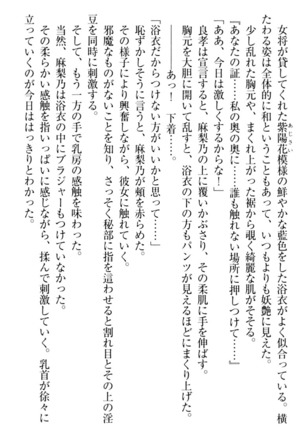 女将が貸してくれた紫陽花模様の鮮やかな藍色をした浴衣がよく似合っている。横
たわる姿は全体的に和ということもあって、いつもよりも妖艶に見える。
少し乱れた胸元や、まくれ上がった裾から覗く綺麗な肌がそそる。
『あなたの証……私の奥の奥に……誰も触れない場所に押しつけて……』
「ああ、今日は激しくするからな!」
良孝は宣言すると、麻梨乃の上に覆いかぶさり、その柔肌に手を伸ばす。
胸元を大胆に開いて乱すと、浴衣の下の方もパンツが見えるほどにまくり上げた。
「―――あっ! 下着―――。」
「浴衣だからつけない方がいいかと思って」
恥ずかしそうに言うと、麻梨乃が頬を赤らめた。
その様子により興奮しながら、彼女に触れていく。
邪魔なものがないことを知り、さっそく秘部に指を這わせると割れ目とその上の淫
豆を同時に刺激する。
そして、もう一方の手で乳房の感触を味わった。
当然、麻梨乃は浴衣の中にブラジャーもつけていなかった。
その柔らかい感触を指いっぱいに感じながら、揉んで刺激していく。乳首が徐々に
立っていくのが今日ははっきりとわかった。